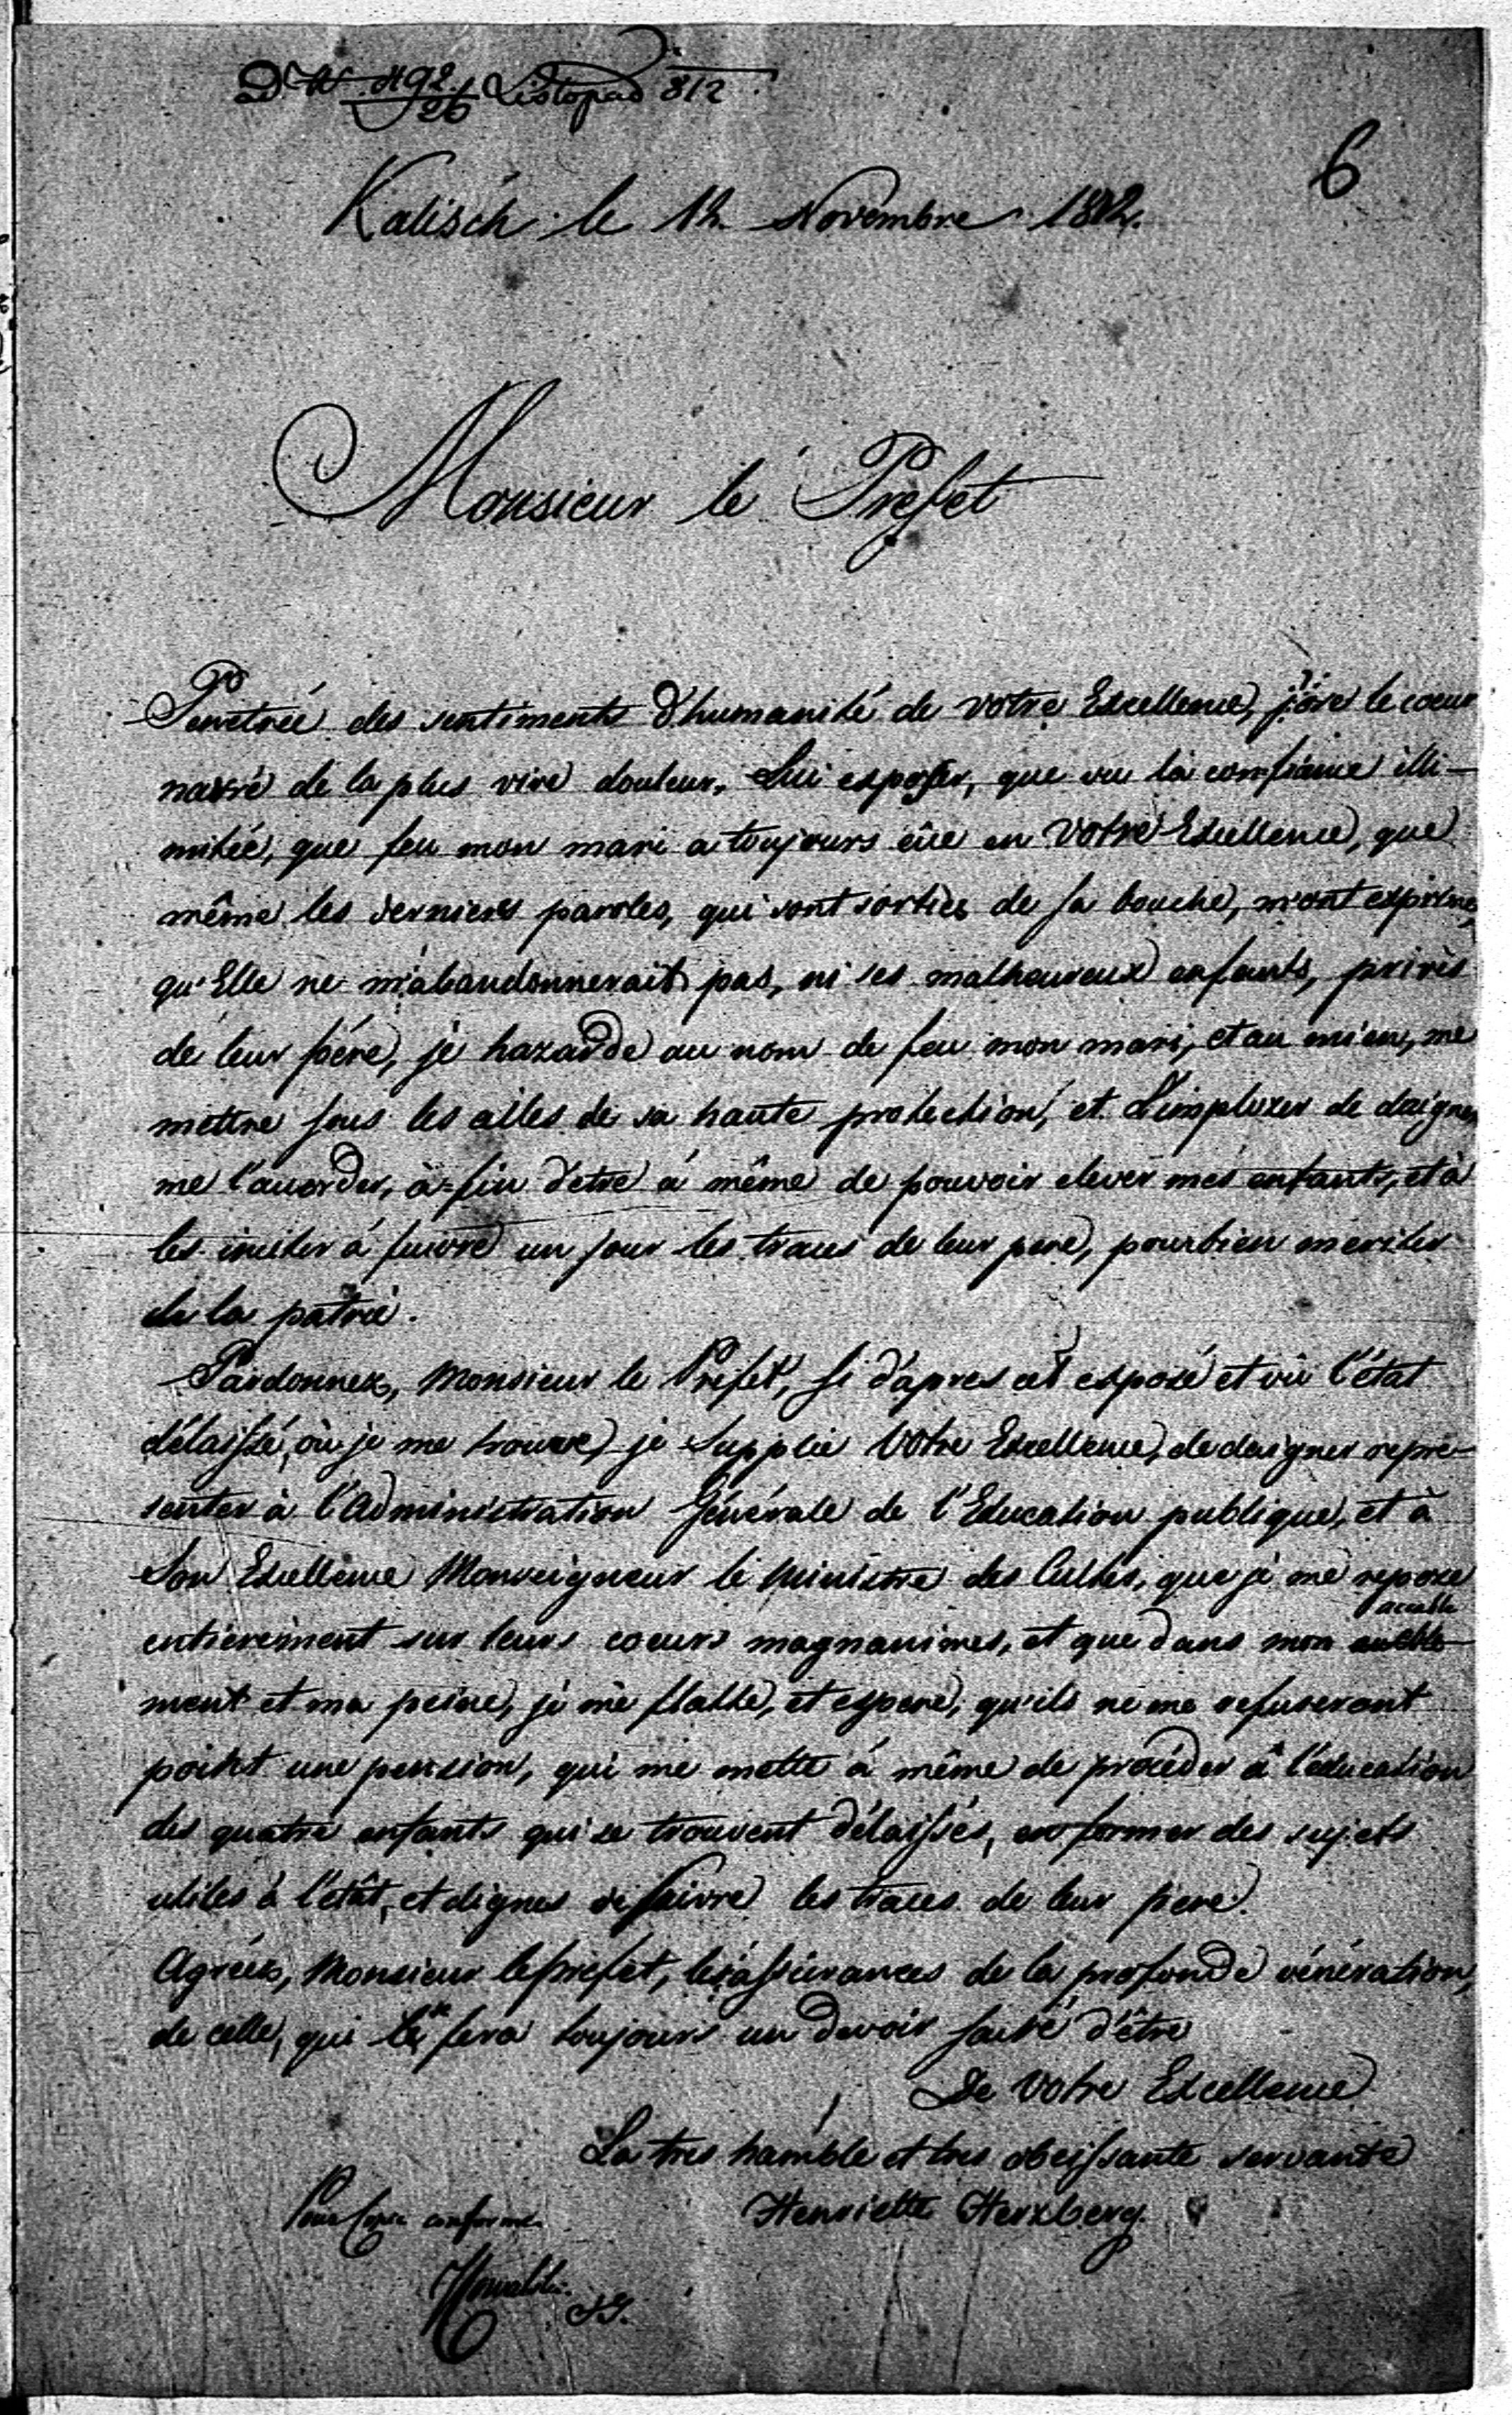 ad N 4192. Listopad 812
26
6
Kalisch le 12 Novembre 1812.
Monsieur le Prefet
Penetrée des sentiments d'humanité de votre Excellence, j'ose le coeur
navré de la plus vive douleur, Lui exposer, que vu la confiance illi-
mitée, que feu mon mari a toujours eüe en Votre Excellence, que
même les derniers paroles, qui sont sorties de sa bouche, m'ont exprimé,
qu'Elle ne m'abandonnerait pas, ni ses malheureux enfants, privés
de leur pére, je hazarde au nom de feu mon mari, et au mien, me
mettre sous les ailles de sa haute protection, et L'implorer de daigner
me l'accorder, à-fin d'etre à même de pouvoir elever mes enfants, et à
les inciter à suivre un jour les traces de leur pere, pour bien meriter
de la patrie.
Pardonnez, Monsieur le Préfet, si d'apres cet exposé et vû l'état
délaissé, où je me trouve, je Supplie Votre Excellence, de daigner repré-
senter à l'Administration Générale de l'Education publique, et à
Son Excellence Monseigneur le Ministre des Cultes, que je me repose
accable
entierement sur leurs coeurs magnanimes, et que dans mon
ment et ma peine, je me flatte, et espere, qu'ils ne me refuseront
point une pension, qui me mette à même de procéder à l'éducation
des quatre enfants qui se trouvent délaissés, en former des sujets
utiles à l'etât, et dignes de suivre les traces de leur pere.
Agréez, Monsieur le prefet, les assurances de la profonde vénération,
de celle, qui se fera toujours un devoir sacré d'être
De Votre Excellence
La tres humble et tres obeissante servante
Pour Copie conforme Henriette Herzberg.
S.G.